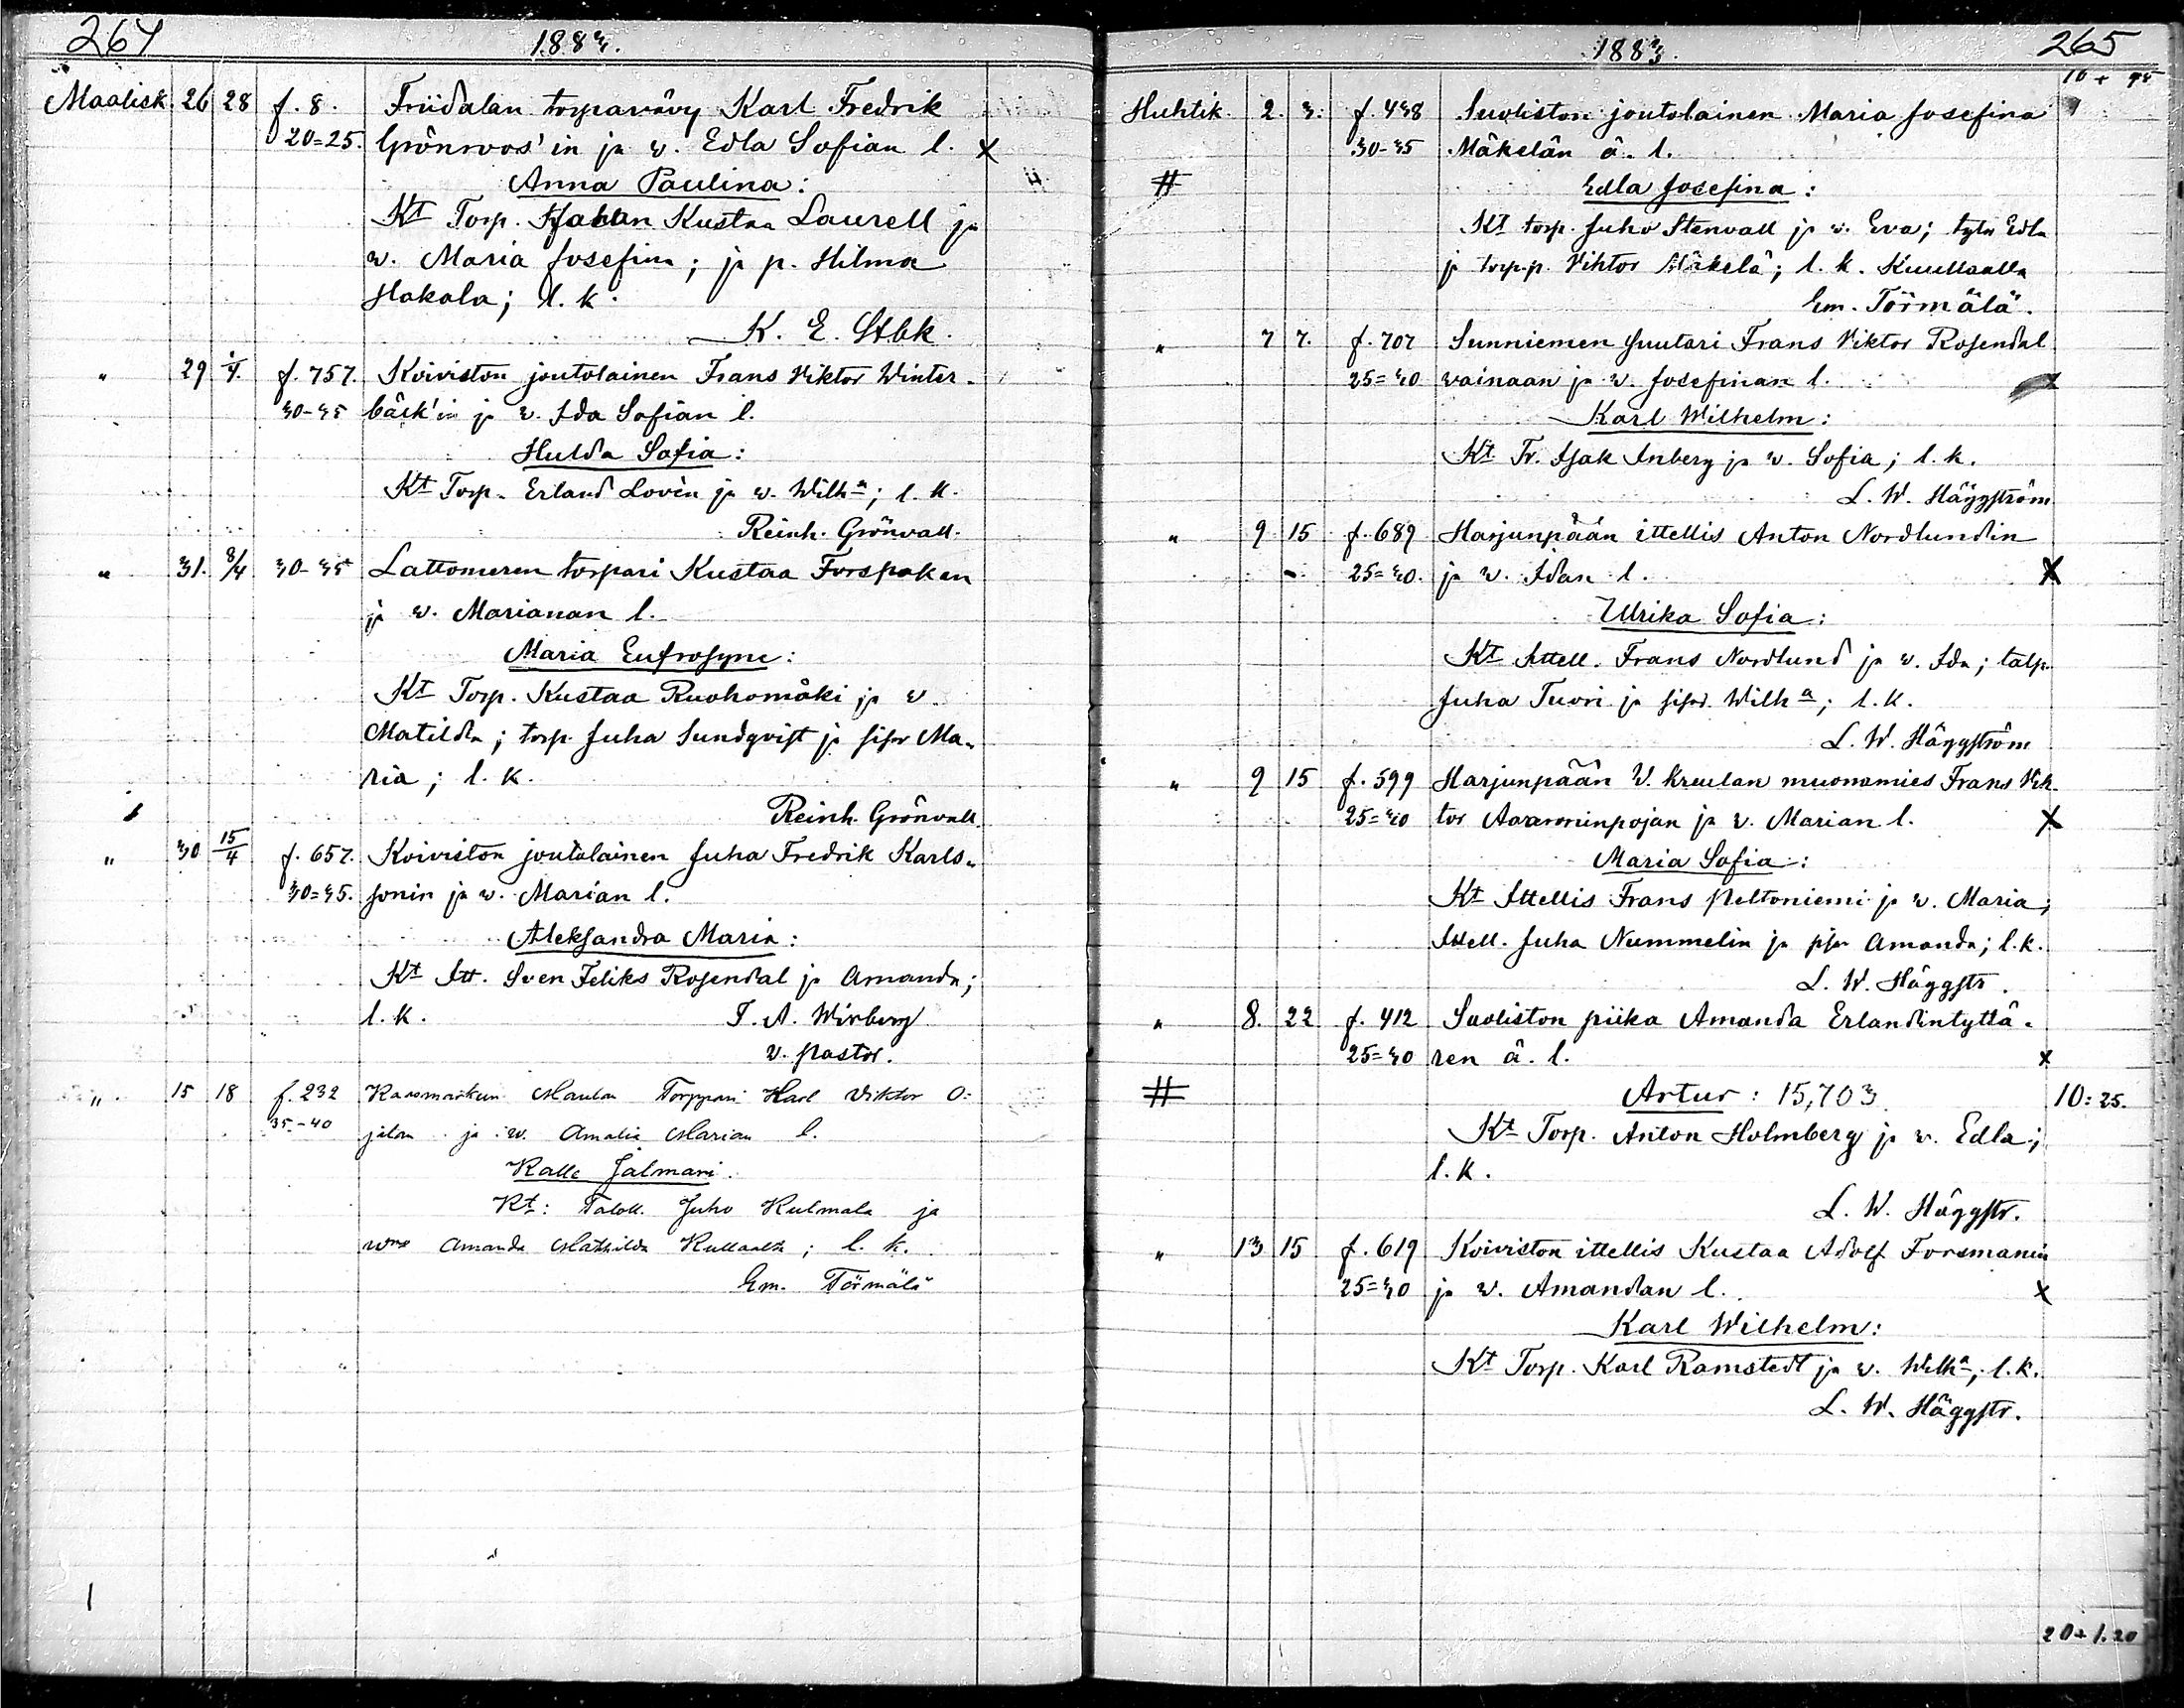 264 1883.
Maalisk. 26 28 f. 8. Friidalan torparävy Karl Fredrik
20=25. Grönroos'in ja w. Edla Sofian l. x
Anna Paulina:
Kt Torp. Kustaa Laurell ja
w. Maria Josefina; ja p. Hilma
Hakala; l. k.
K. E. Stbk.
" 29 1/4. f. 757. Koiviston joutolainen Frans Viktor Winter-
30-35 bäck'in ja w. Ida Sofian l.
Hulda Sofia:
Kt Torp. Erland Lovén ja w. Wilha; l. k.
Reinh. Grönvall.
" 31. 8/4 30-35 Lattomeren torpari Kustaa Forspaken
ja w. Marianan l.
Maria Eufrosyne:
Kt Torp. Kustaa Ruohomäki ja w.
Matilda; torp. Juha Sundqvist ja sisar Ma-
ria; l. k.
Reinh. Grönvall.
" 30 15/4 f. 657. Koiviston joutolainen Juha Fredrik Karls-
30=35. sonin ja w. Marian l.
Aleksandra Maria:
Kt Itt. Sven Feliks Rosendal ja Amanda;
l. k. F. A. Wirberg
v. pastor.
" 15 18 f. 232 Kaasmarkun Torppari Karl Viktor O=
35-40 jalan ja w. Amalia Marian l.
Kalle Jalmari.
Kt: Taloll. Juho Kulmala ja
wmo Amanda Mathilda Kullaalta; l. k.
Em. Törmälä
1
1883. 265
10 +
Huhtik. 2. 3. f. 438 Suoliston joutolainen Maria Josefina
30-35 Mäkelän ä. l.
# Edla Josefina:
Kt torp. Juho Stenvall ja w. Eva; tytär Edla
ja torp.p. Viktor Mäkelä; l. k. Kuullaalla
Em. Törmälä.
" 7 7. f. 707 Sunniemen suutari Frans Viktor Rosendal
25=30 vainaan ja w. Josefinan l. x
Karl Wilhelm:
Kt Tr. Isak Inberg ja w. Sofia; l. k.
L. W. Häggström
" 9 15 f. 689 Harjunpään ittellis Anton Nordlundin
25=30. ja w. Idan l. X
Ulrika Sofia:
Kt Ittell. Frans Nordlund ja w. Ida; talp.
Juha Tuori ja sisar Wilha; l. k.
L. W. Häggström
" 9 15 f. 599 Harjunpään V. Kreulan muonamies Frans Vik-
25=30 tor Aaroninpojan ja w. Marian l. X
Maria Sofia:
Kt Ittellis Frans Peltoniemi ja w. Maria;
Ittell. Juha Nummelin ja Amanda; l. k.
L. W. Häggstr.
" 8. 22 f. 412 Suoliston piika Amanda Erlandintyttä-
25=30 ren ä. l. x
# Artur: 15,703. 10:25.
Kt Torp. Anton Holmberg ja w. Edla;
l. k.
L. W. Häggstr.
" 13 15 f. 619 Koiviston ittellis Kustaa Adolf Forsmanin
25=30 ja w. Amandan l. x
Karl Wilhelm:
Kt Torp. Karl Ramstedt ja w. Wilha; l. k.
L. W. Häggstr.
20+1.20